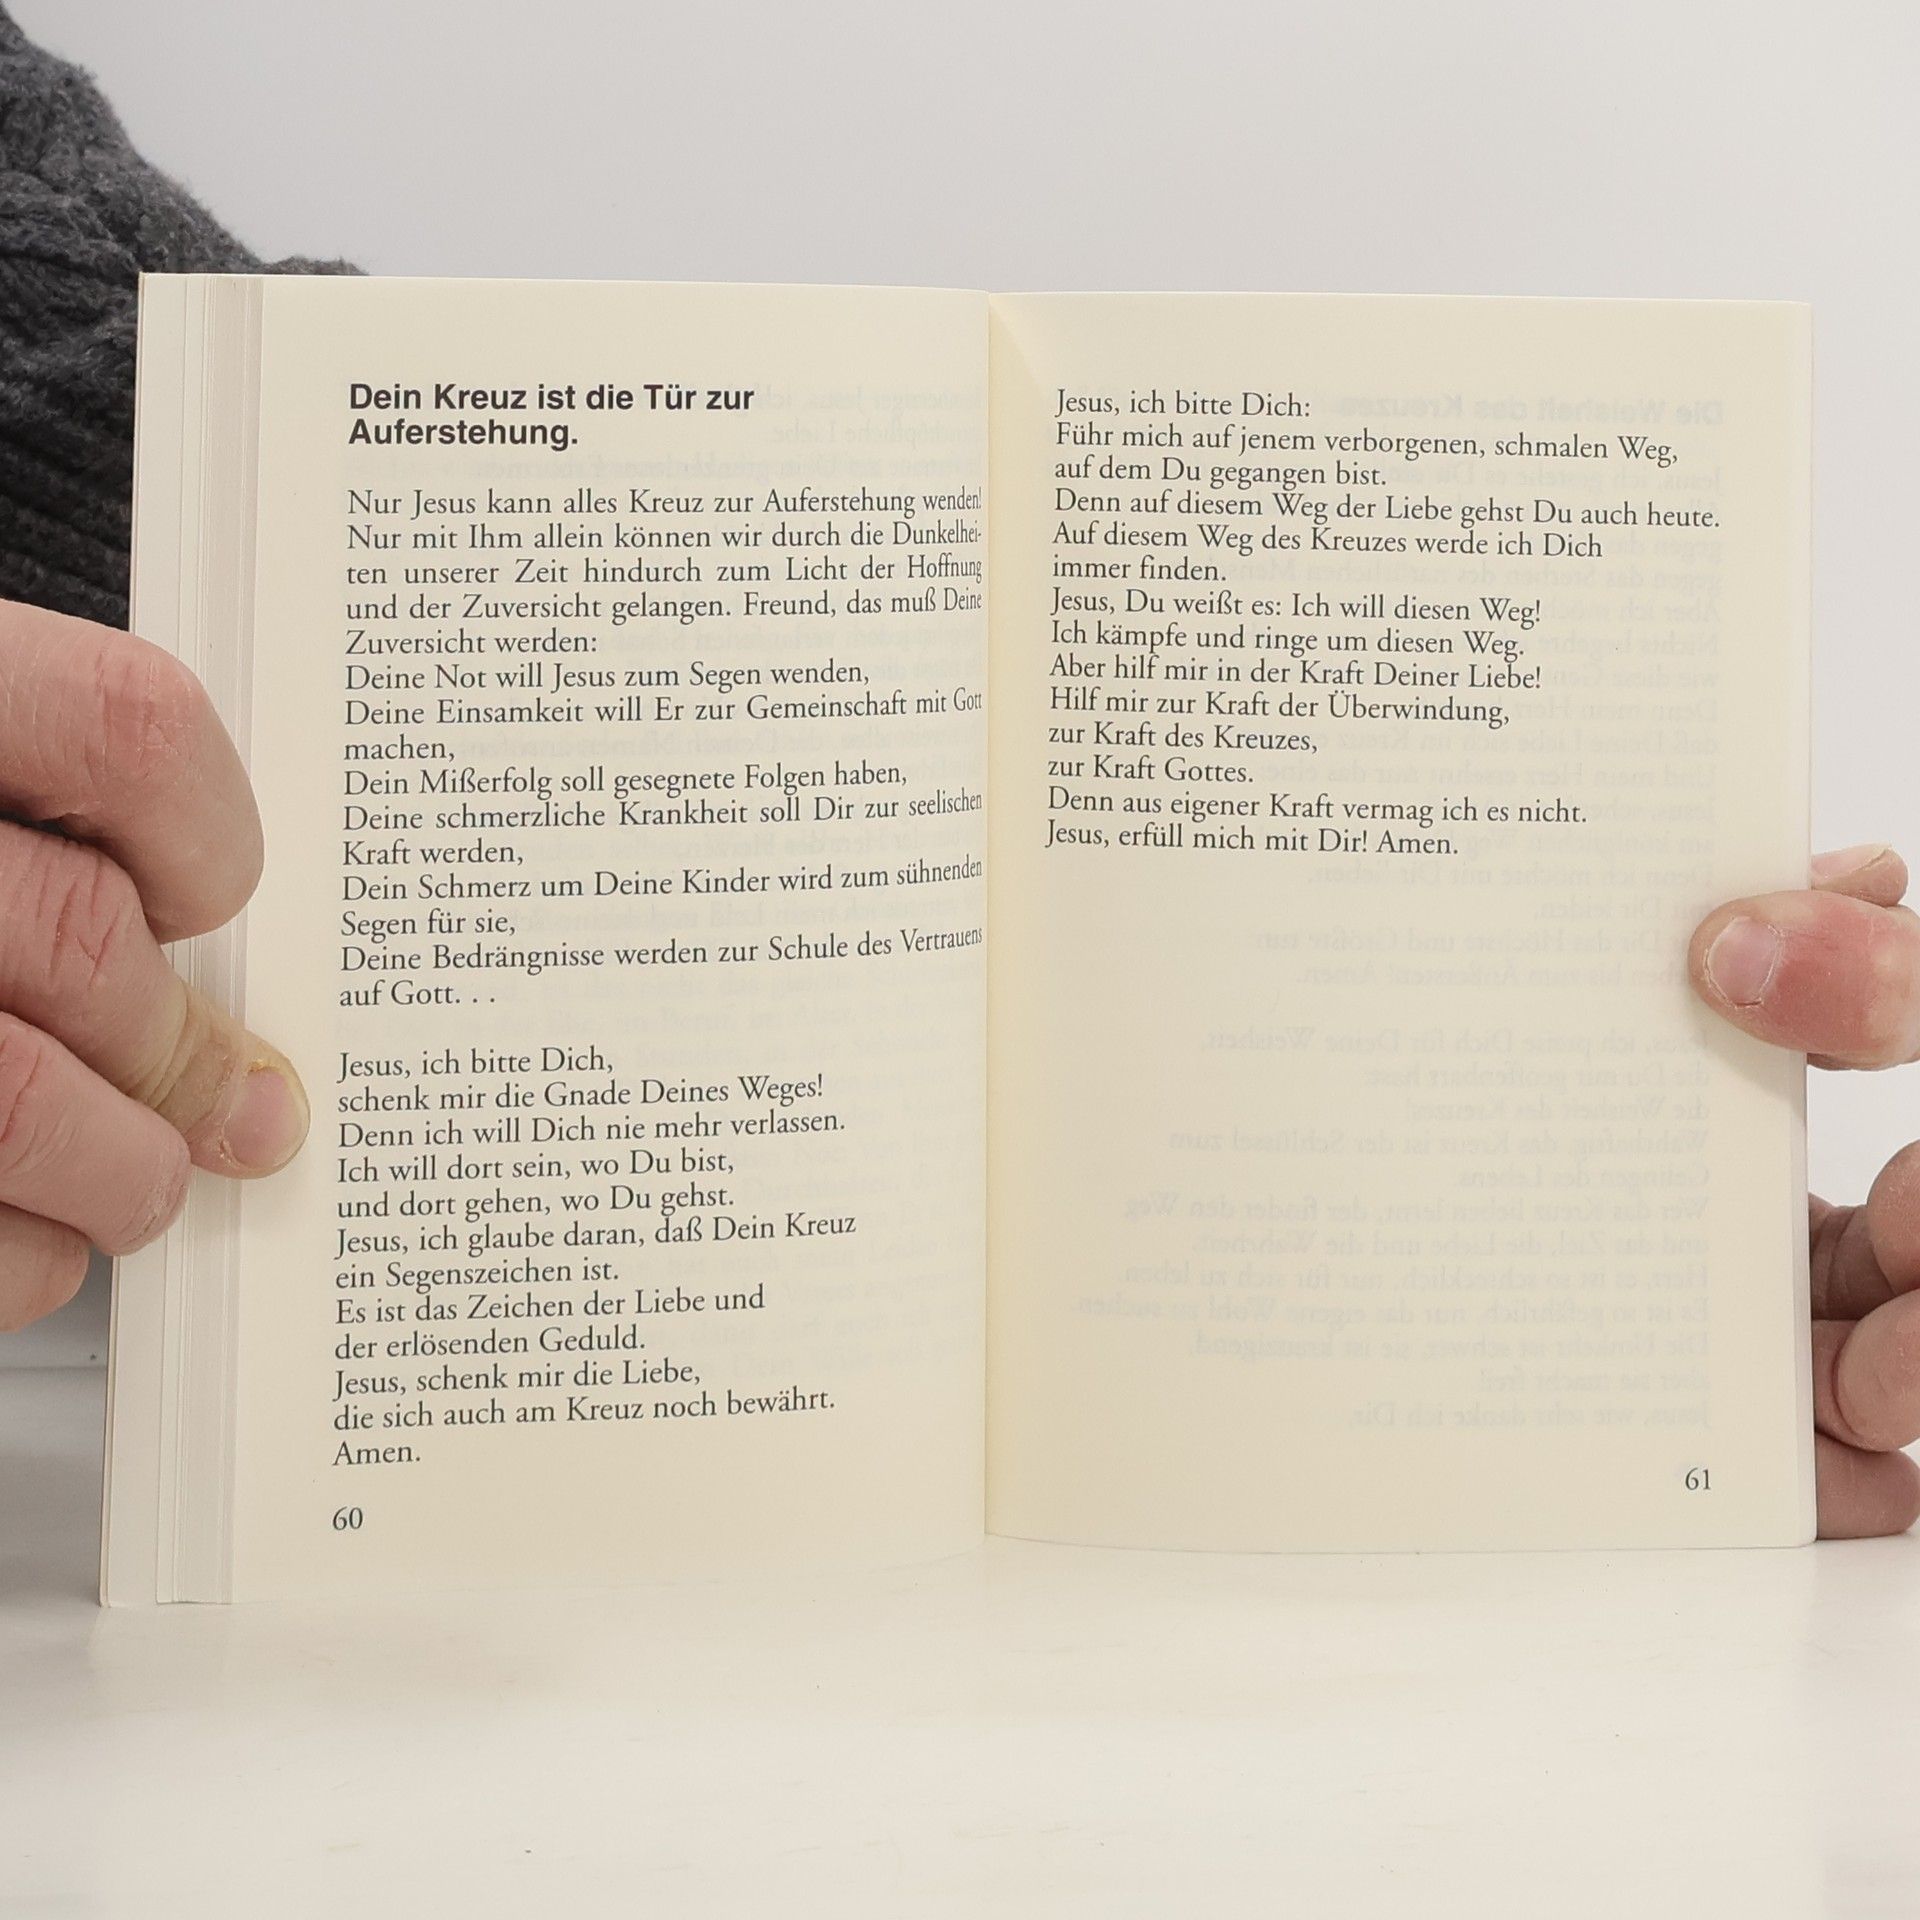 Dein Kreuz ist die Tür zur
Auferstehung.
Nur Jesus kann alles Kreuz zur Auferstehung wenden!
Nur mit Ihm allein können wir durch die Dunkelhei-
ten unserer Zeit hindurch zum Licht der Hoffnung
und der Zuversicht gelangen. Freund, das muß Deine
Zuversicht werden:
Deine Not will Jesus zum Segen wenden,
Deine Einsamkeit will Er zur Gemeinschaft mit Gott
machen,
Dein Mißerfolg soll gesegnete Folgen haben,
Deine schmerzliche Krankheit soll Dir zur seelischen
Kraft werden,
Dein Schmerz um Deine Kinder wird zum sühnenden
Segen für sie,
Deine Bedrängnisse werden zur Schule des Vertrauens
auf Gott. . .
Jesus, ich bitte Dich,
schenk mir die Gnade Deines Weges!
Denn ich will Dich nie mehr verlassen.
Ich will dort sein, wo Du bist,
und dort gehen, wo Du gehst.
Jesus, ich glaube daran, daß Dein Kreuz
ein Segenszeichen ist.
Es ist das Zeichen der Liebe und
der erlösenden Geduld.
Jesus, schenk mir die Liebe,
die sich auch am Kreuz noch bewährt.
Amen.
60
Jesus, ich bitte Dich:
Führ mich auf jenem verborgenen, schmalen Weg,
auf dem Du gegangen bist.
Denn auf diesem Weg der Liebe gehst Du auch heute.
Auf diesem Weg des Kreuzes werde ich Dich
immer finden.
Jesus, Du weißt es: Ich will diesen Weg!
Ich kämpfe und ringe um diesen Weg.
Aber hilf mir in der Kraft Deiner Liebe!
Hilf mir zur Kraft der Überwindung,
zur Kraft des Kreuzes,
zur Kraft Gottes.
Denn aus eigener Kraft vermag ich es nicht.
Jesus, erfüll mich mit Dir! Amen.
61